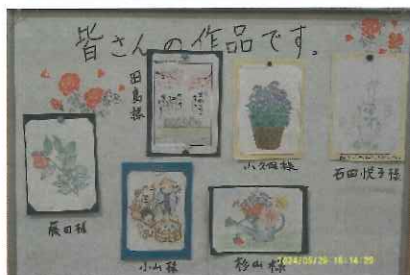 皆さんの作品です。
田島様
小久保様
石田悦子様
藤田様
小山様
杉山様
2024/05/29 16:14:29